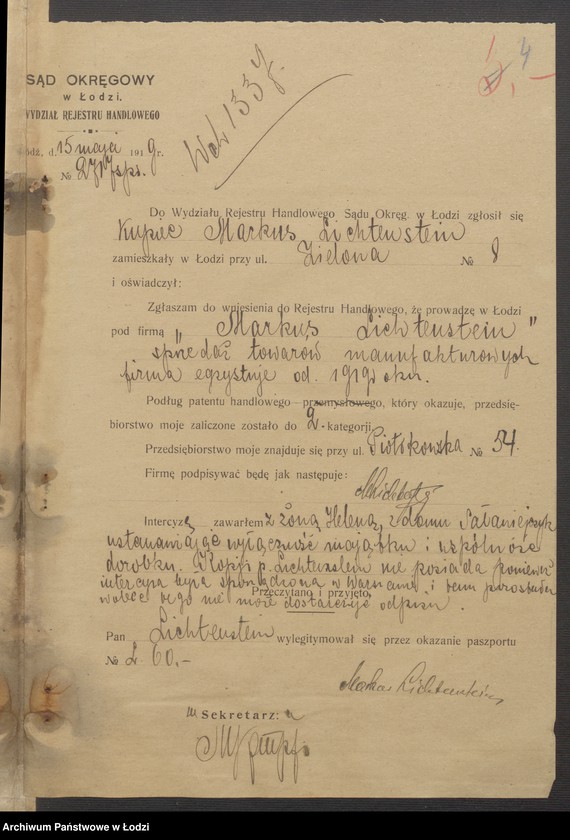 4
SĄD OKRĘGOWY
w Łodzi.
WYDZIAŁ REJESTRU HANDLOWEGO
d. 15 maja 1919 r.
№
Do Wydziału Rejestru Handlowego Sądu Okręg. w Łodzi zgłosił się
Kupiec Markus Lichtenstein
zamieszkały w Łodzi przy ul. Zielona № 8
i oświadczył:
Zgłaszam do wniesienia do Rejestru Handlowego, że prowadzę w Łodzi
pod firmą „Markus Lichtenstein”
sprzedaż towarów manufakturowych
firma egzystuje od 1919 roku.
Podług patentu handlowego – przemysłowego, który okazuje, przedsię-
biorstwo moje zaliczone zostało do 2. kategorji
Przedsiębiorstwo moje znajduje się przy ul. Piotrkowska № 54.
Firmę podpisywać będę jak następuje:
Intercyzę zawarłem z żoną Heleną z domu
ustanawiając wyłączność majątku i wspólność
dorobku. Kopji p. Lichtenstein nie posiada ponieważ
intercyza była sporządzona w Warszawie i
Przeczytano i przyjęto,
wobec tego nie może dostarczyć odpisu.
Pan Lichtenstein wylegitymował się przez okazanie paszportu
№ 60.-
Markus Lichtenstein
Sekretarz:
Archiwum Państwowe w Łodzi